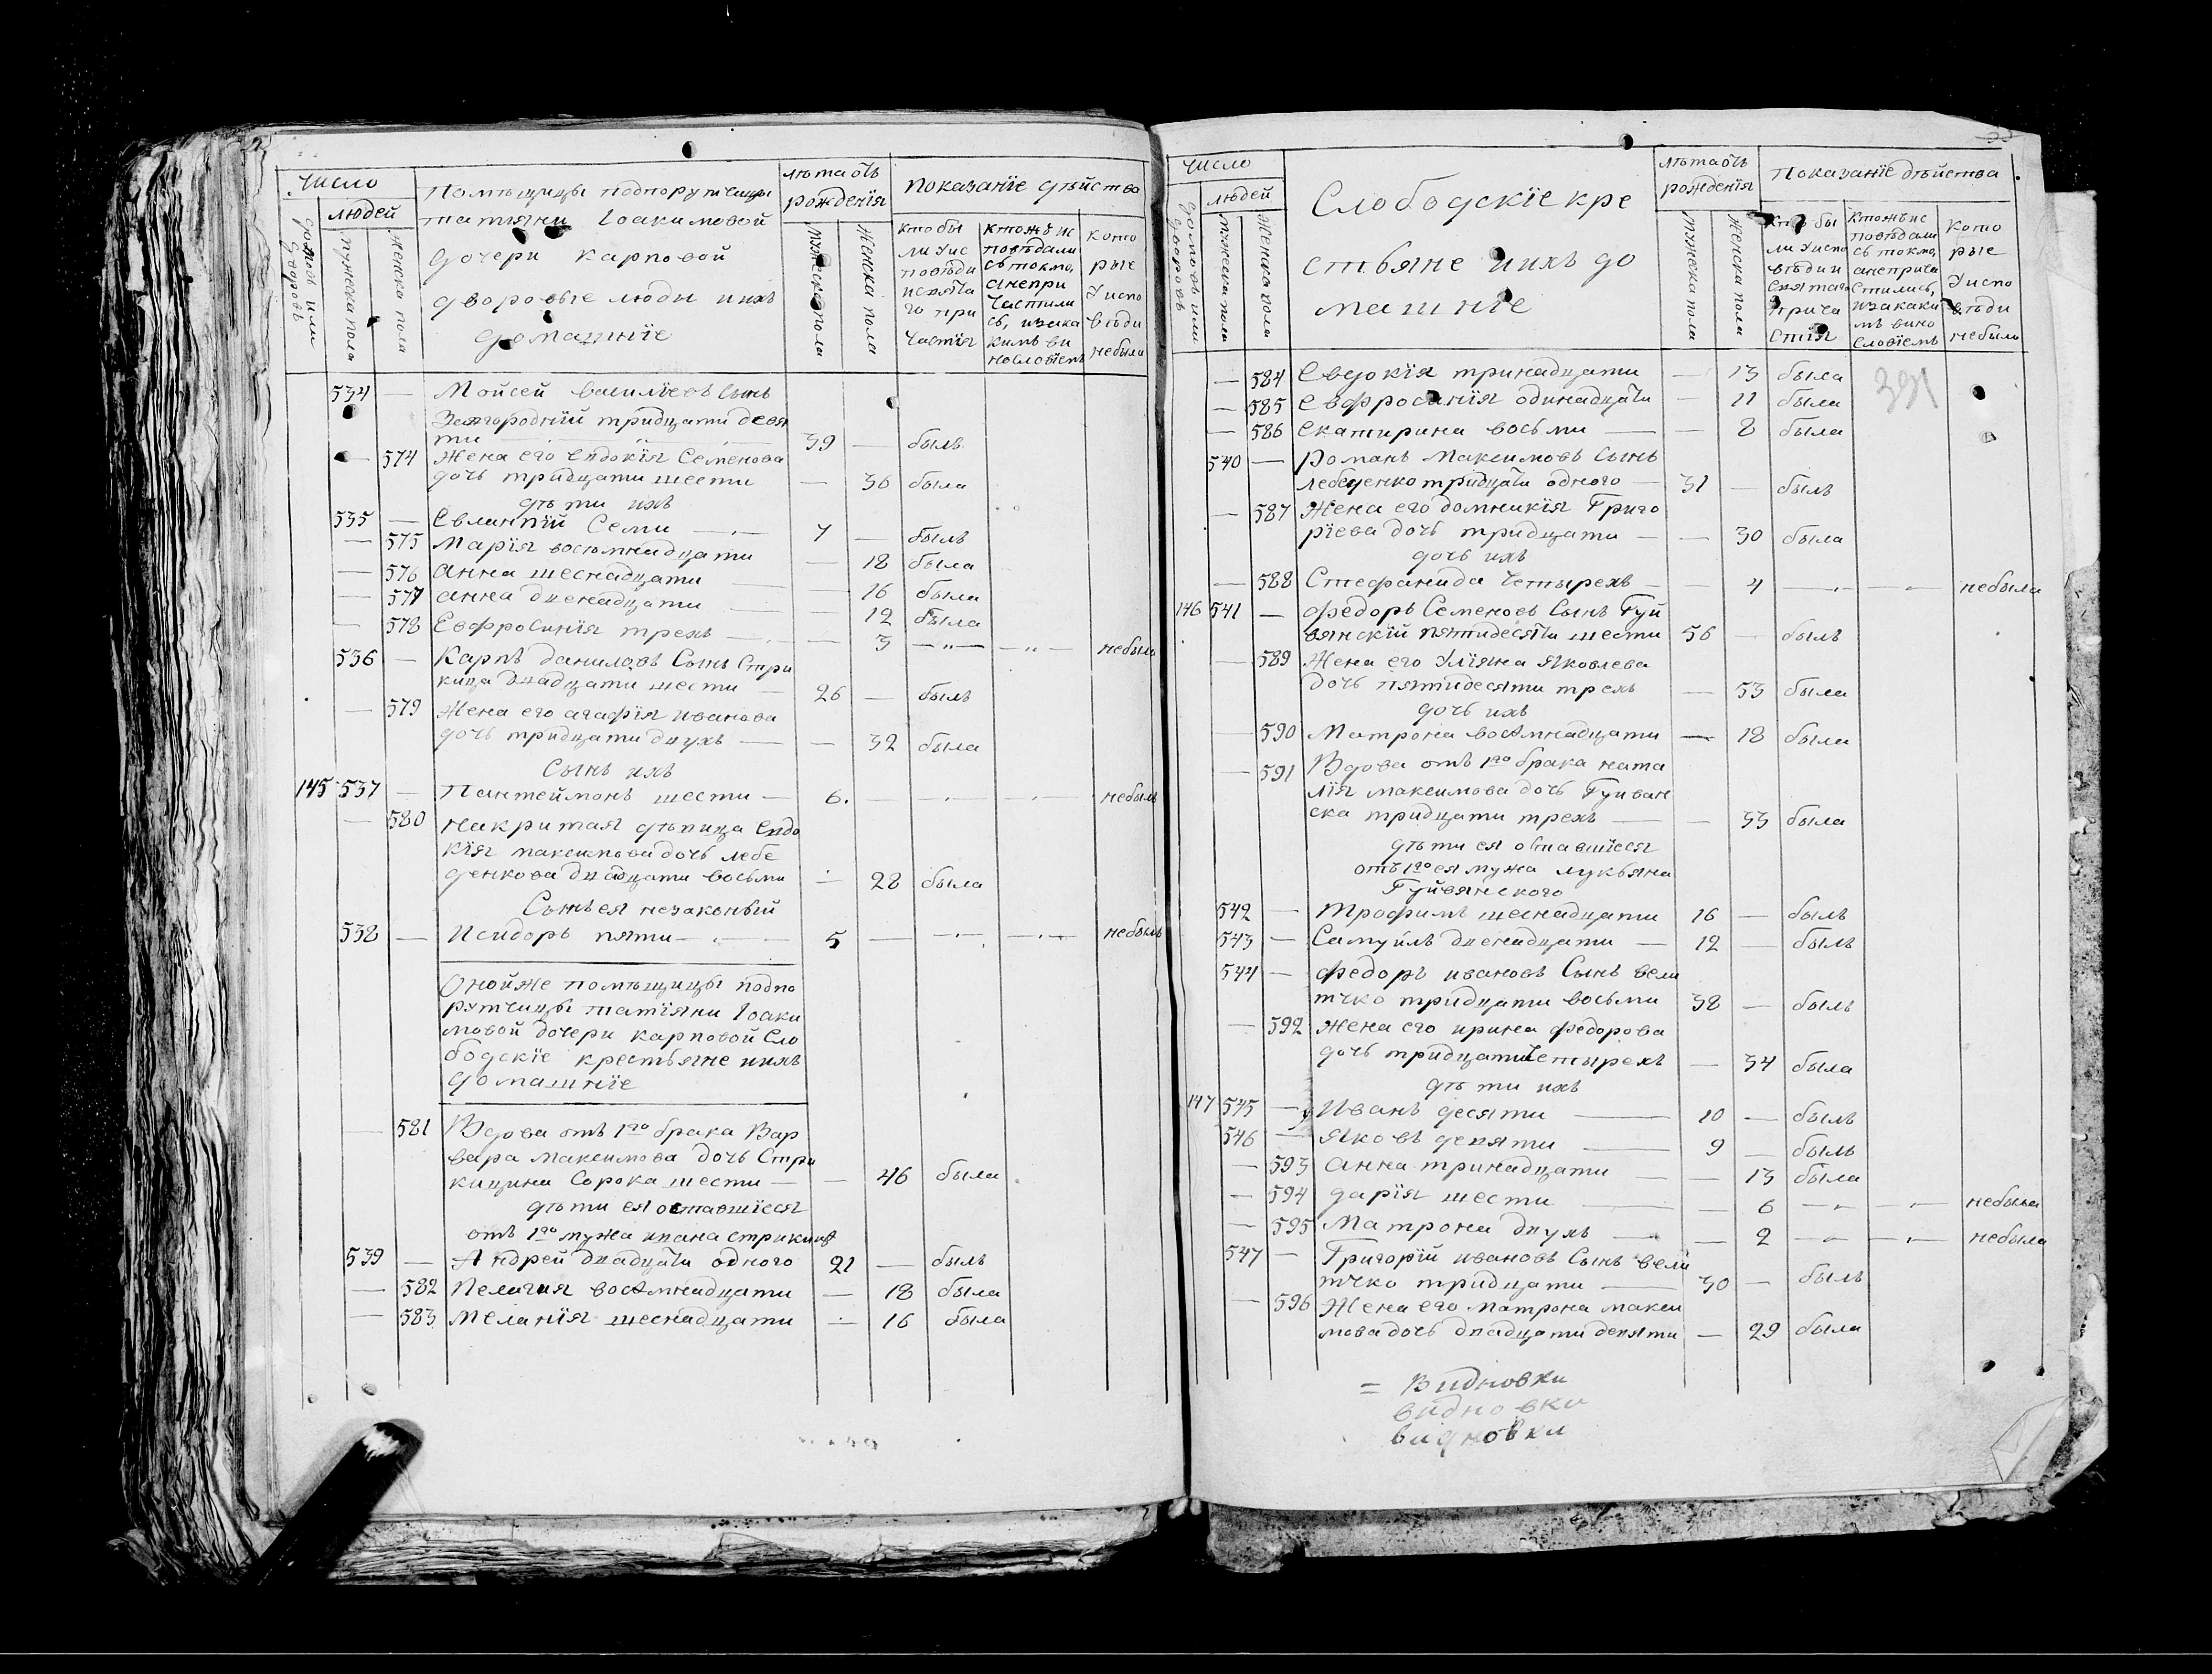 Число
людей
домовъ или дворовъ
мужеска пола
женска пола
Помѣщицы подпорутчицы
татіяни Іоакимовой
дочери карповой
дворовые люди и ихъ
домашніе
лѣта отъ
рожденія
мужеска пола
женска пола
показаніе дѣйства
кто бы
ли у ис
повѣди
и свята
го при
частія
кто жъ ис
повѣдали
сь токмо,
а не при
частили
сь, и за ка
кимъ ви
нословіемъ
кото
рые
у испо
вѣди
не были
534 — Мойсей васильевъ сынъ
Загородній тридцати девя
ти 39 — былъ
— 574 Жена его Евдокія Семенова
дочь тридцати шести — 36 была
дѣти ихъ
535 — Евлампій Семи 7 — былъ
— 575 Марія восюмнадцати — 18 была
— 576 анна шеснадцати — 16 была
— 577 анна двенадцати — 12 была
— 578 Евфросинія трехъ — 3 — — небыла
536 — Карпъ даниловъ Сынъ Стри
кица двадцати шести 26 — былъ
— 579 Жена его агафія иванова
дочь тридцати двухъ — 32 была
Сынъ ихъ
145 537 — Пантеймонъ шести 6. — — небылъ
— 580 накритая дѣвица Евдо
кія максимова дочь лебе
денкова двадцати восьми — 28 была
Сынъ ея незаконый
538 — Исидоръ пяти 5 — — — небылъ
Онойже помѣщицы подпо
рутчицы татіяни Іоаки
мовой дочери карповой Сло
бодскіе крестьяне и ихъ
домашніе
— 581 Вдова отъ 1го брака Вар
вара максимова дочь Стри
кицина Сорока шести — 46 была
дѣти ея оставшіеся
отъ 1го мужа ивана стрикици
539 — Андрей двадцати одного 21 — былъ
— 582 Пелагия восемнадцати — 18 была
— 583 меланія шеснадцати — 16 была
Число
людей
домовъ или дворовъ
мужеска пола
женска пола
Слободскіе кре
стьяне и ихъ до
машніе
лѣта отъ
рожденія
мужеска пола
женска пола
Показаніе дѣйства
кто бы
ли у испо
вѣди и
святаго
прича
стія
кто жъ ис
повѣдали
сь токмо,
а не прича
стились,
и за каки
мъ вино
словіемъ
кото
рые
у испо
вѣди
не были
391
— 584 Евдокія тринадцати — 13 была
— 585 Евфросинія одинадцати — 11 была
— 586 екатирина восьми — 8 была
540 — Романъ Максимовъ Сынъ
лебеденко тридцати одного 31 — былъ
— 587 Жена его домникія Григо
ріева дочь тридцати — 30 была
дочь ихъ
— 588 Стефанида четырехъ — 4 — — небыла
146 541 — федоръ Семеновъ Сынъ Гуй
вянскій пятидесяти шести 56 — былъ
— 589 Жена его Уліяна Яковлева
дочь пятидесяти трехъ — 53 была
дочь ихъ
— 590 Матрона восемнадцати — 18 была
— 591 Вдова отъ 1го брака ната
лія максимова дочь Гуйван
ска тридцати трехъ — 33 была
дѣти ея оставшіеся
отъ 1го ея мужа лукьяна
Гуйвянского
542 — трофимъ шеснадцати 16 — былъ
543 — Самуйлъ двенадцати — 12 — былъ
544 — федоръ ивановъ Сынъ вели
тчко тридцати восьми 38 — былъ
— 592 жена его ирина федорова
дочь тридцати четырехъ — 34 была
дѣти ихъ
147 545 — Иванъ десяти 10 — былъ
546 — Яковъ девяти 9 — былъ
— 593 анна тринадцати — 13 была
— 594 дарія шести — 6 — — небыла
— 595 Матрона двухъ — 2 — — небыла
547 — Григорій ивановъ Сынъ вели
тчко тридцати 30 — былъ
— 596 Жена его матрона макси
мова дочь двадцати девяти — 29 была
= Видновки
видновки
видновки